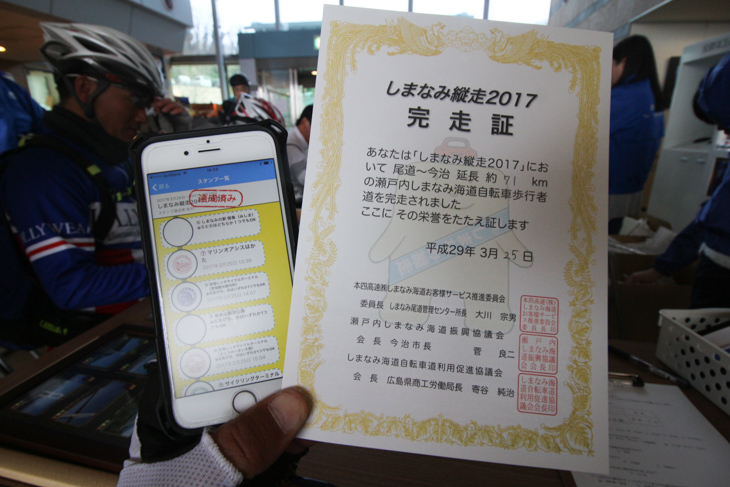 しまなみ縦走2017
完走証
あなたは「しまなみ縦走2017」にお
いて 尾道～今治 延長 約 71 km
の瀬戸内しまなみ海道自転車歩行者
道を完走されました
ここに その栄誉をたたえ証します
平成29年 3月 25日
本四高速㈱しまなみ海道お客様サービス推進委員会
委員長 しまなみ尾道管理センター所長 大川 宗男
瀬戸内しまなみ海道振興協議会
会長 今治市長 菅 良二
しまなみ海道自転車道利用促進協議会
会長 広島県商工労働局長 寄谷 純治
スタンプ一覧
達成済み
マリンオアシスはか
た
サイクリングターミナル
LLY WEAR